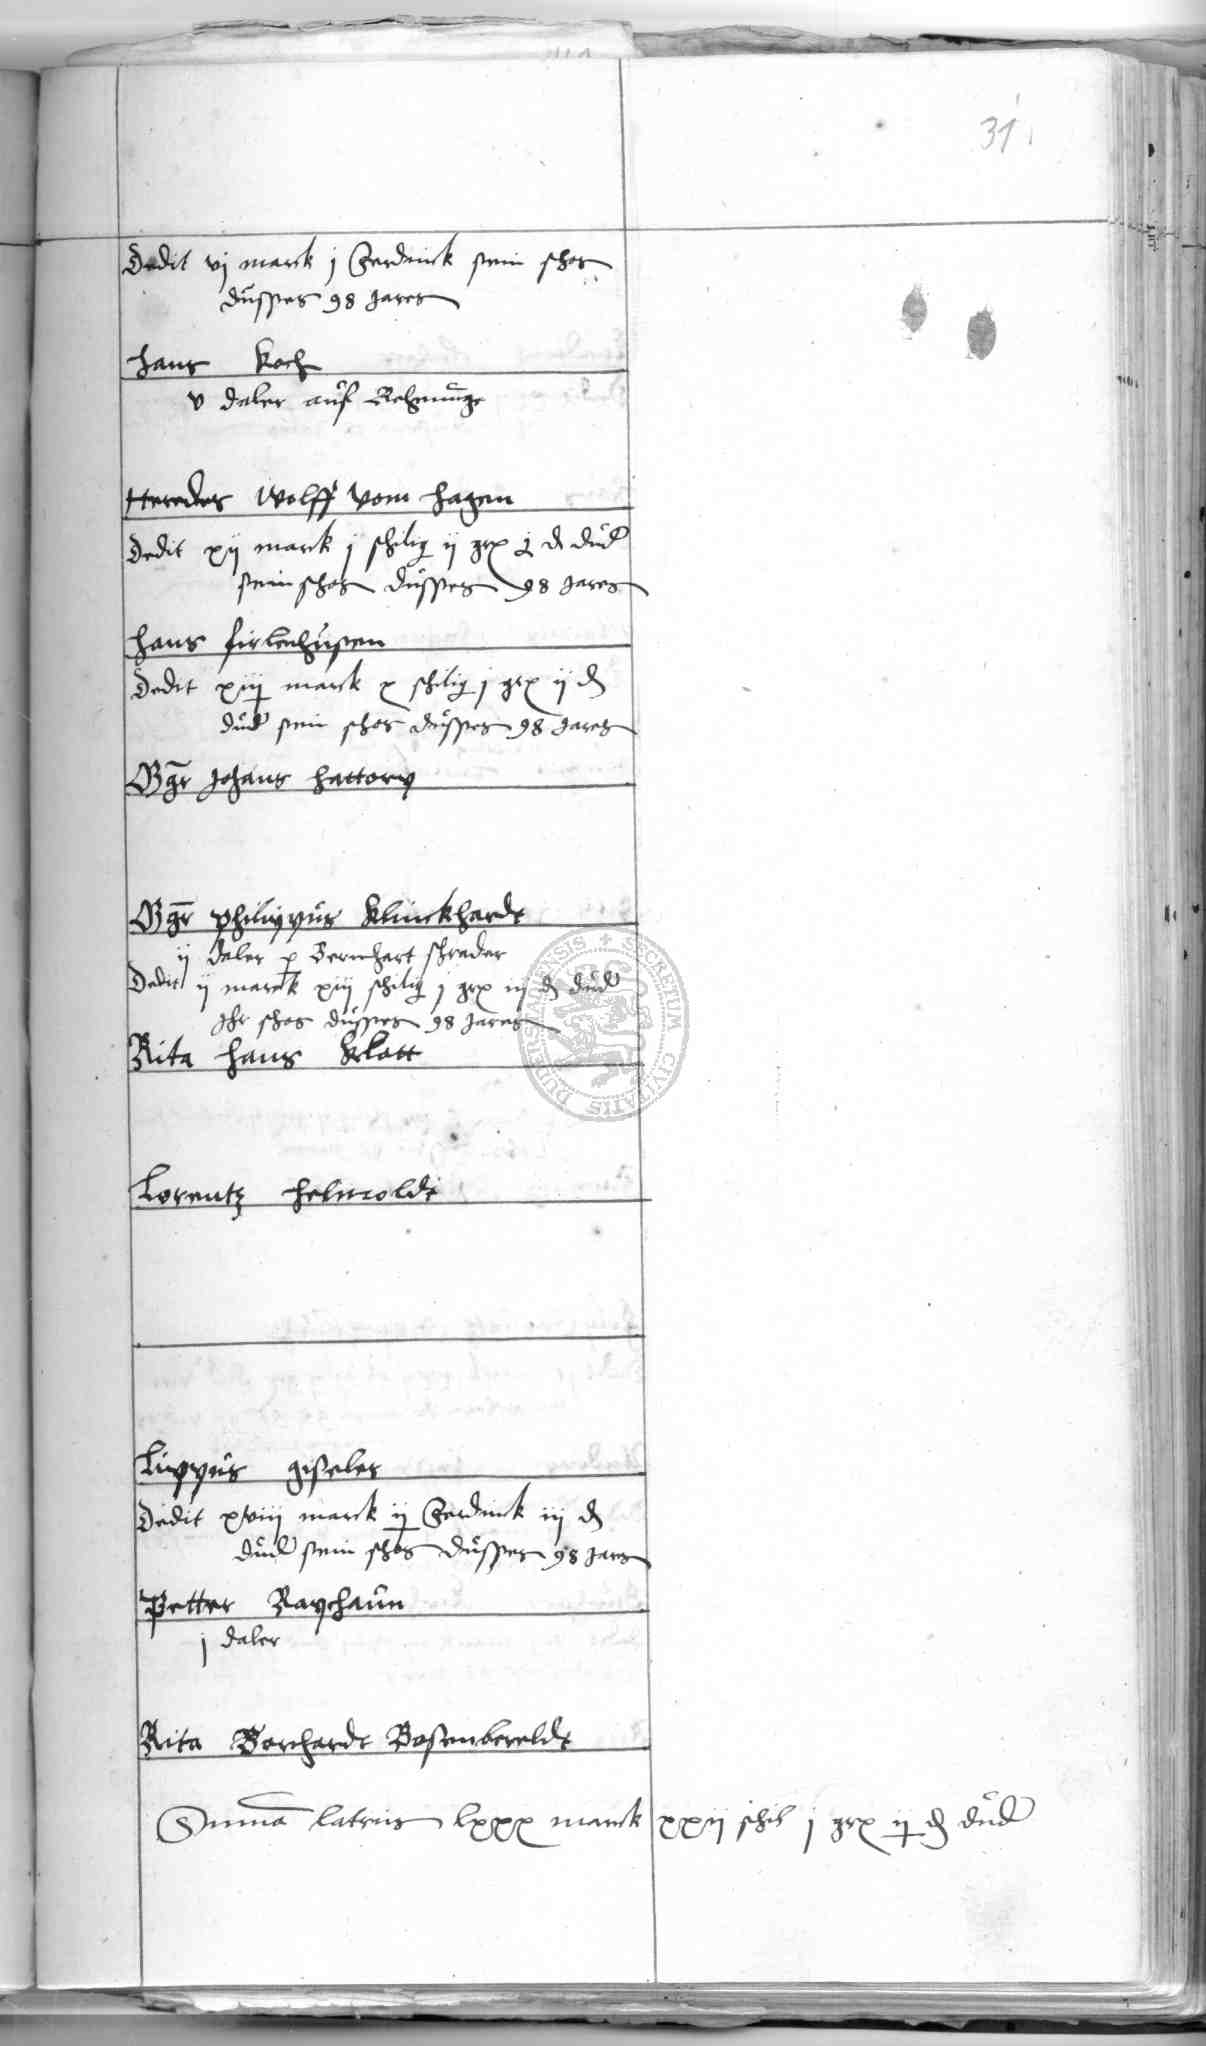 31
Dedit vj marck j Ferdinck sein schos
düsses 98 Jares
hans Koch
v daler auf Rechnunge
Heredes Wolff vom hagen
Dedit xij marck j schilig ij grx j d dud
sein schos düsses 98 Jares
hans firlenhusen
Dedit xiij marck x schilig j grx ij d
dud sein schos düsses 98 Jares
Bgr Johans hattorp
Bgr philippus Klinckhardt
ij daler p Bernhart schrader
Dedit ij marck xiij schilig j grx iij d dud
Ihr schos düsses 98 Jares
Rita hans Klott
Lorentz helmoldt
Lippus giseler
Dedit xviij marck ij Ferdinck iij d
dud sein schos düsses 98 Jars
Petter Raychaun
j daler
Rita Borchardt
Summa lateris lxxx marck xxij schil j grx ij d dud
SECRETUM CIVITATIS DUDERSTADIENSIS